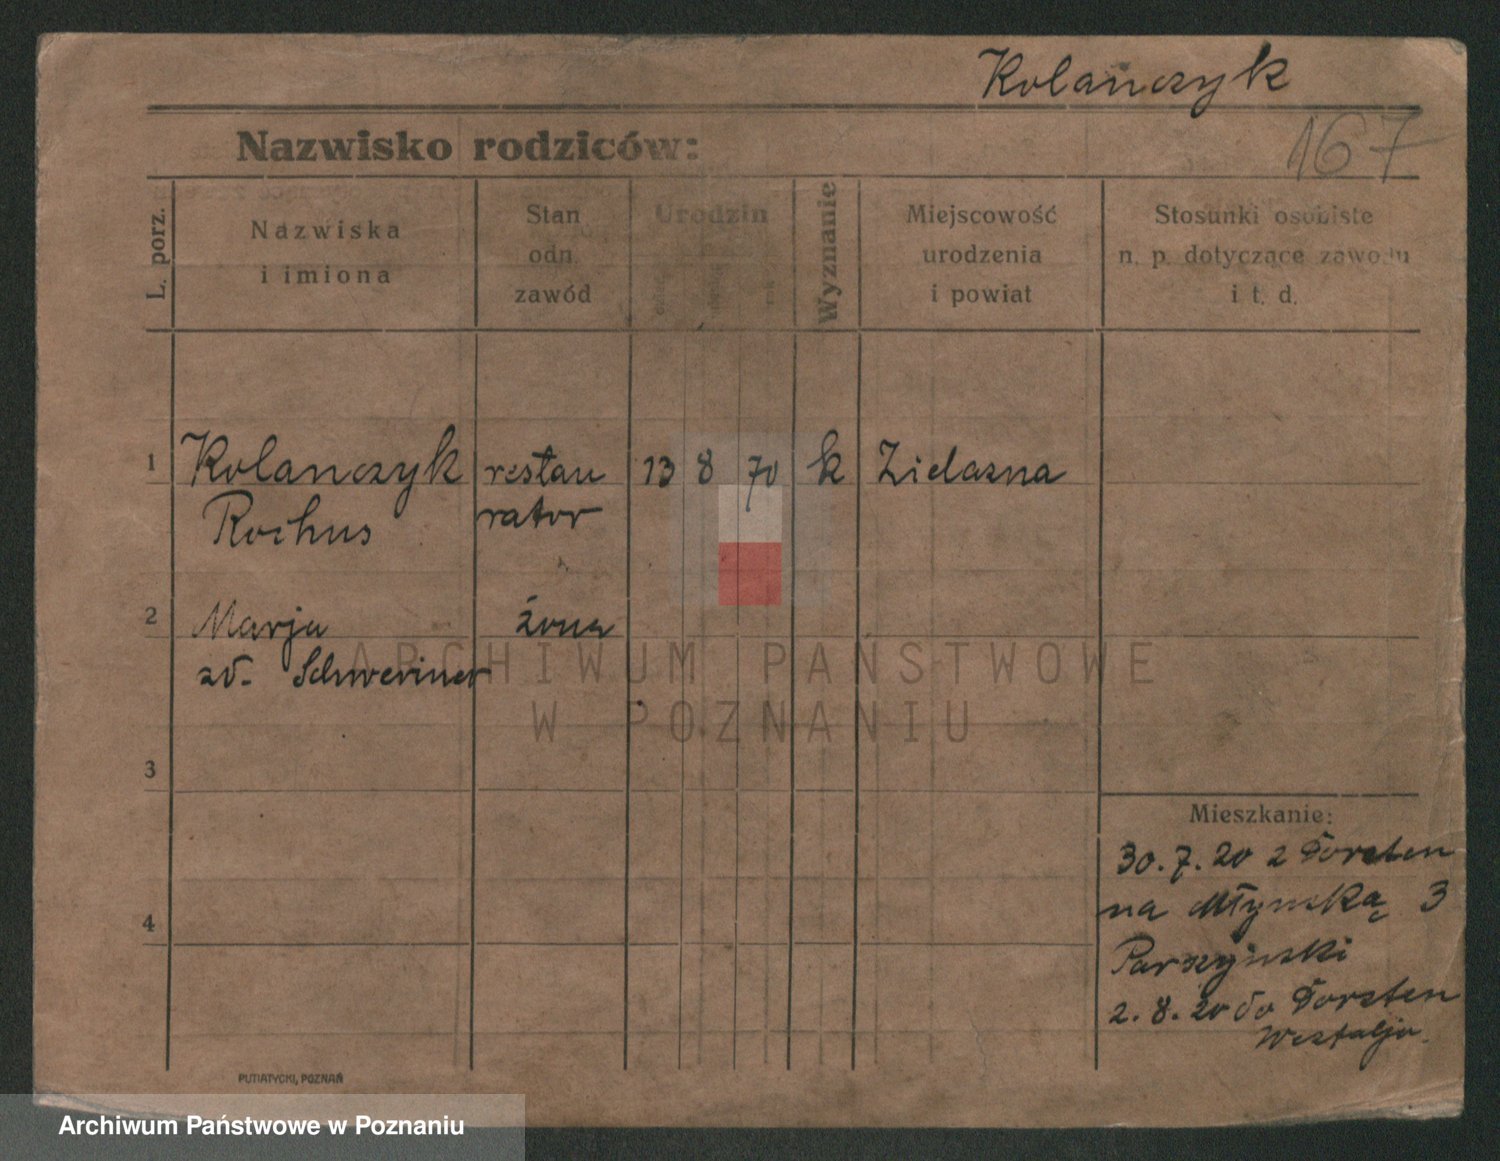 Kolańczyk
167
Nazwisko rodziców:
L. porz.
Nazwiska
i imiona
Stan
odn.
zawód
Urodzin
Wyznanie
Miejscowość
urodzenia
i powiat
Stosunki osobiste
n. p. dotyczące zawodu
i t. d.
1 Kolanczyk restau 13 8 70 k Zielasna
Rochus rator
2 Marja żona
zd. Schweriner
ARCHIWUM PAŃSTWOWE
W POZNANIU
3
Mieszkanie:
30.7.20 z Dorsten
na Młyńską 3
4
Parszyński
2.8.20 do Dorsten
Westalja.
PUTIATYCKI, POZNAŃ
Archiwum Państwowe w Poznaniu